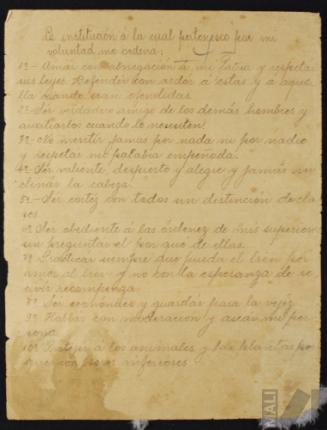 La institución á la cual pertenesco por mi
voluntad me ordena:
1º- Amar con abnegación á mi Patria y respetar
sus leyes. Defender con ardor á estas y á aque
lla cuando sean ofendidas
2º- Ser verdadero amigo de los demás hombres y
auxiliarlos cuando lo necesiten.
3º- No mentir jamas por nada ni por nadie
y respetar mi palabra empeñada.
4º- Ser valiente, despierto y alegre y jamás in
clinar la cabeza.
5º- Ser cortéz con todos sin distinción de cla
ses
6º Ser obediente á las órdenez de mis superior
sin preguntar el por que de ellas.
7º Practicar siempre que pueda el bien por
amor al bien y no con la esperanza de re
civir recompenza.
8º Ser económico y guardar para la vejez
9º Hablar con moderacion y asear mi per
sona
10º Proteger á los animales y las plantas por
que son seres inferiores
MALI